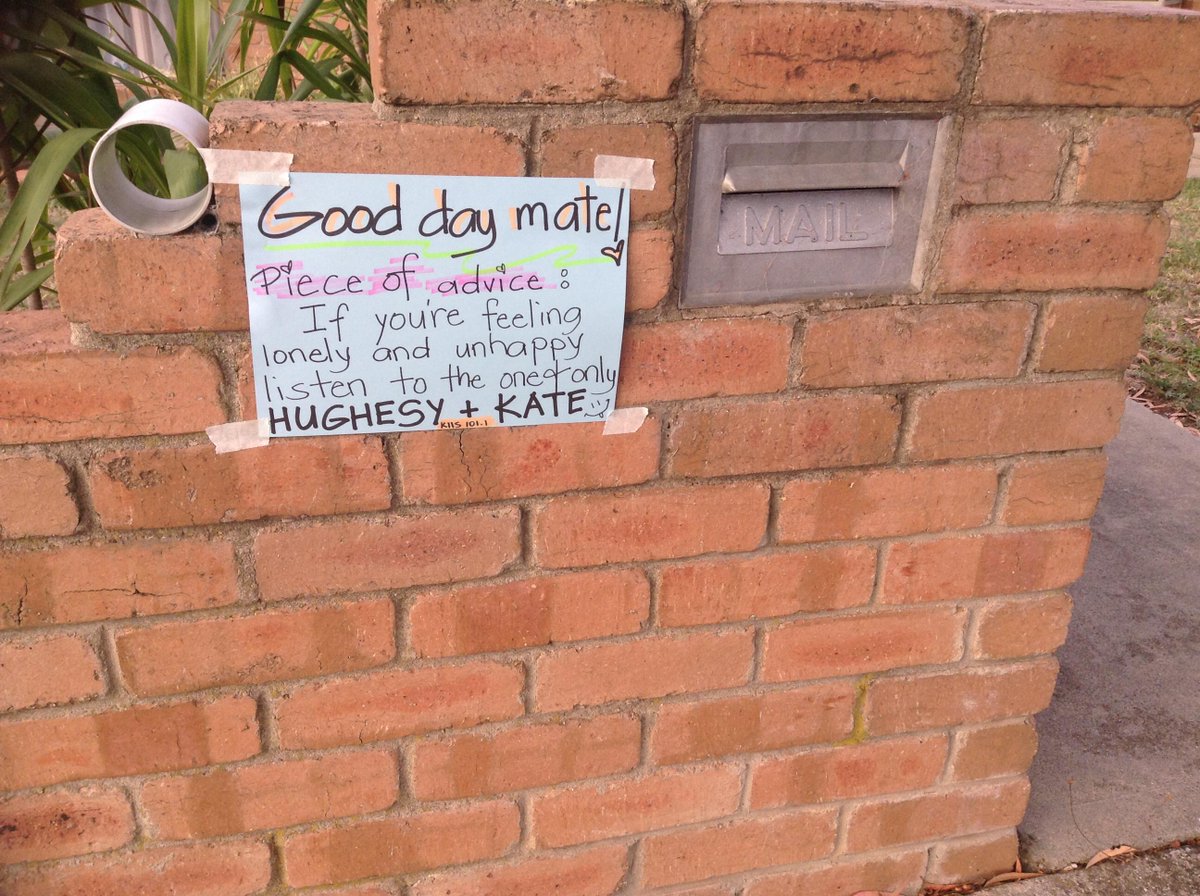 Good day mate!
Piece of advice:
If you're feeling
lonely and unhappy
listen to the one & only
HUGHESY + KATE
KIIS 101.1
MAIL